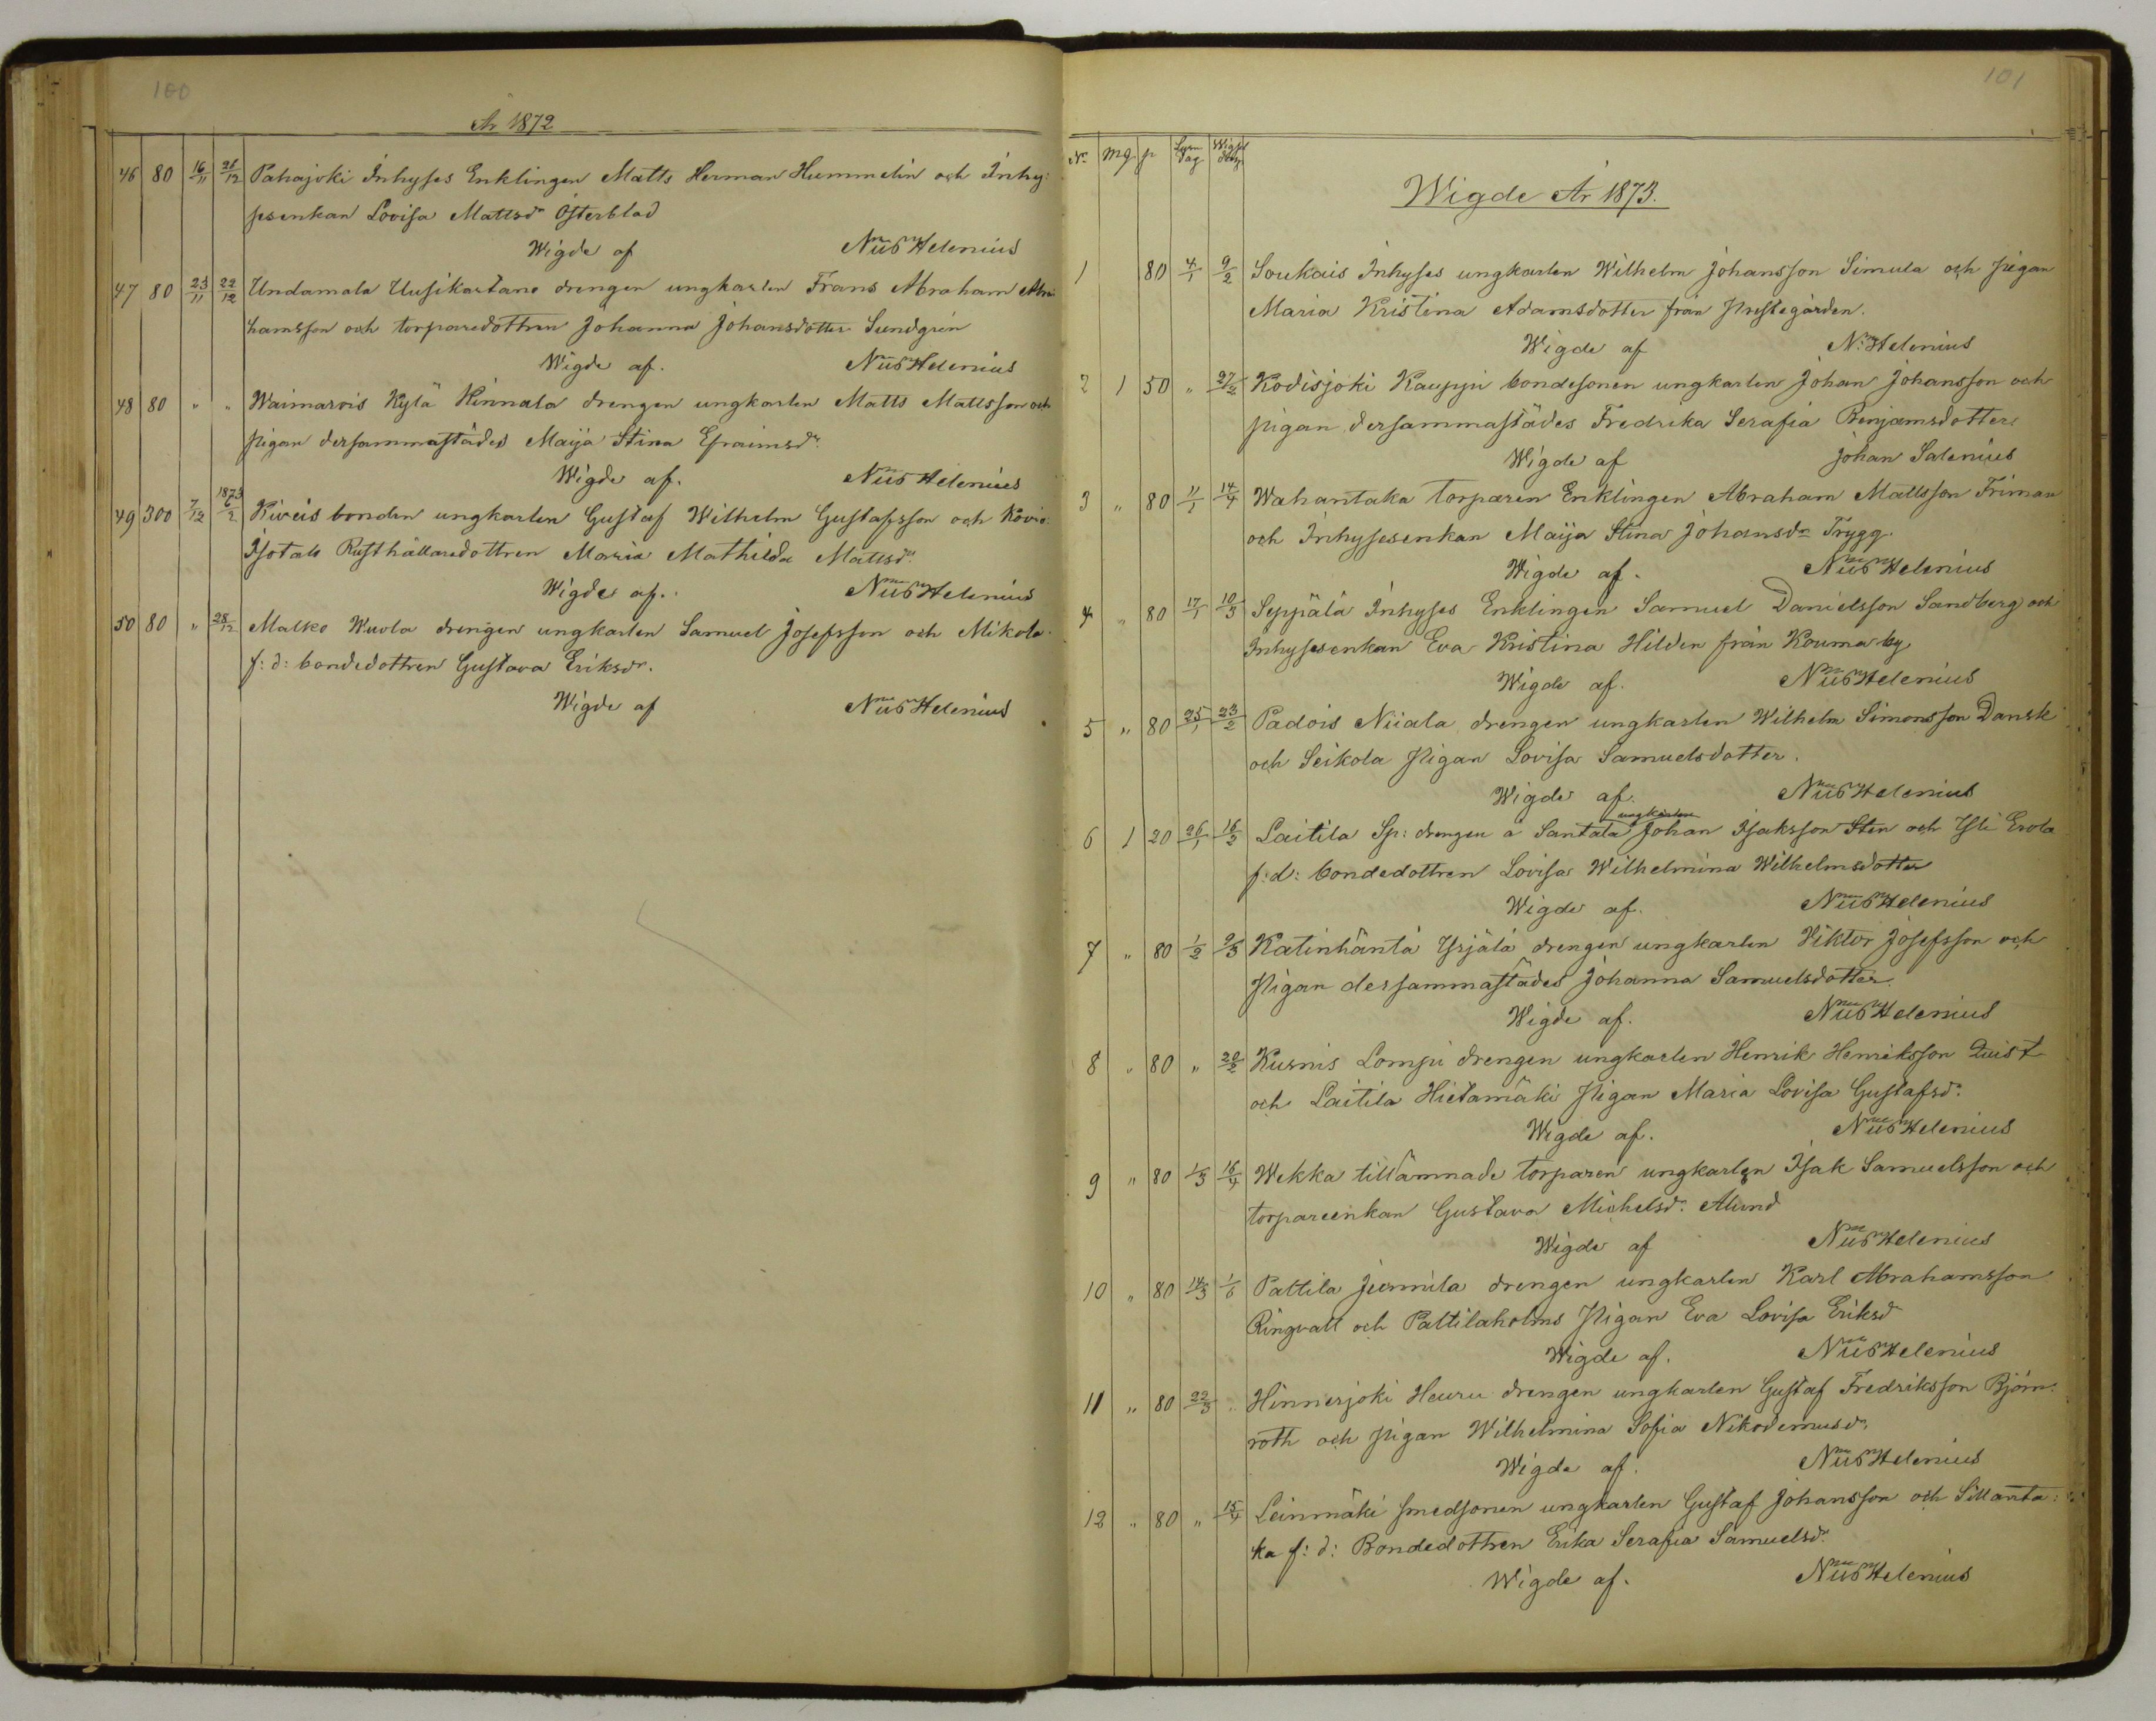 100
År 1872
46 80 16/11 21/12 Pahajoki Inhyses Enklingen Matts Herman Hummelin och Inhy:
sesenkan Lovisa Mattsdr Österblad
Wigde af Nils Helenius
47 80 23/11 22/12 Undamala Uusikartano drengen ungkarlen Frans Abraham Abra
hamsson och torparedottren Johanna Johansdotter Sundgren
Wigde af. Nils Helenius
48 80 " " Waimarois Kylä Hinnala drengen ungkarlen Matts Mattsson och
pigan dersammastädes Maija Stina Efraimsdr
Wigde af. Nils Helenius
1873
49 300 7/12 6/2 Kiveis bonden ungkarlen Gustaf Wilhelm Gustafsson och Kovio
Isotalo Rusthållaredottren Maria Mathilda Mattsdr
Wigde af. Nils Helenius
50 80 " 28/12 Malko Wuola drengen ungkarlen Samuel Josefsson och Mikola
f: d: bondedottren Gustava Eriksdr.
Wigde af Nils Helenius
101
No mg p Lysn dag Wigsel dag
Wigde År 1873.
1 80 4/1 9/2 Soukais Inhyses ungkarlen Wilhelm Johansson Simula och pigan
Maria Kristina Adamsdotter från Prestegården.
Wigde af N: Helenius
2 1 50 " 27/2 Kodisjoki Kauppi bondesonen ungkarlen Johan Johansson och
pigan dersammastädes Fredrika Serafia Benjamsdotter
Wigde af Johan Salenius
3 " 80 11/1 14/4 Wahantaka torparen Enklingen Abraham Mattsson Friman
och Inhysesenkan Maija Stina Johansdr Trygg.
Wigde af. Nils Helenius
4 " 80 17/1 10/3 Seppälä Inhyses Enklingen Samuel Danielsson Sandberg och
Inhysesenkan Eva Kristina Hilden från Kouma by
Wigde af. Nils Helenius
5 " 80 25/1 23/2 Padois Niiala drengen ungkarlen Wilhelm Simonsson Dansk
och Seikola Pigan Lovisa Samuelsdotter.
Wigde af. Nils Helenius
ungkarlen
6 1 20 26/1 16/2 Laitila Sp: drengen å Santala Johan Isaksson Sten och Yli Erola
f: d: bondedottren Lovisa Wilhelmina Wilhelmsdotter
Wigde af. Nils Helenius
7 " 80 1/2 9/3 Katinhäntä Yrjälä drengen ungkarlen Viktor Josefsson och
Pigan dersammastädes Johanna Samuelsdotter.
Wigde af. Nils Helenius
8 " 80 " 20/2 Kusnis Lompi drengen ungkarlen Henrik Henriksson Quist
och Laitila Hietamäki Pigan Maria Lovisa Gustafsdr
Wigde af. Nils Helenius
9 " 80 1/3 16/4 Wekka tillämnade torparen ungkarlen Isak Samuelsson och
torpareenkan Gustava Michelsdr. Alund
Wigde af Nils Helenius
10 " 80 14/3 1/6 Pattila Juvmila drengen ungkarlen Karl Abrahamsson
Ringvall och Pattilaholms Pigan Eva Lovisa Eriksd
Wigde af. Nils Helenius
11 " 80 22/3 " Hinnerjoki Heuru drengen ungkarlen Gustaf Fredriksson Björn
roth och pigan Wilhelmina Sofia Nikodemusdr
Wigde af. Nils Helenius
12 " 80 " 15/4 Leinmäki smedsonen ungkarlen Gustaf Johansson och Sillanta:
ka f: d: Bondedottren Erika Serafia Samuelsdr
Wigde af. Nils Helenius